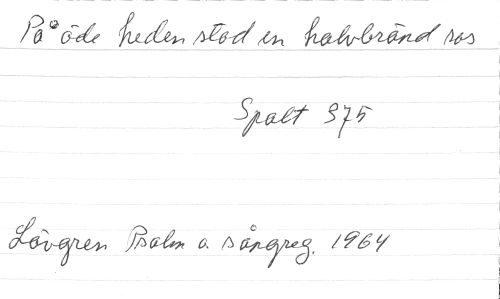 På öde heden stod en halvbränd sos
Spalt 375
Lövgren Psalm o sångreg. 1964